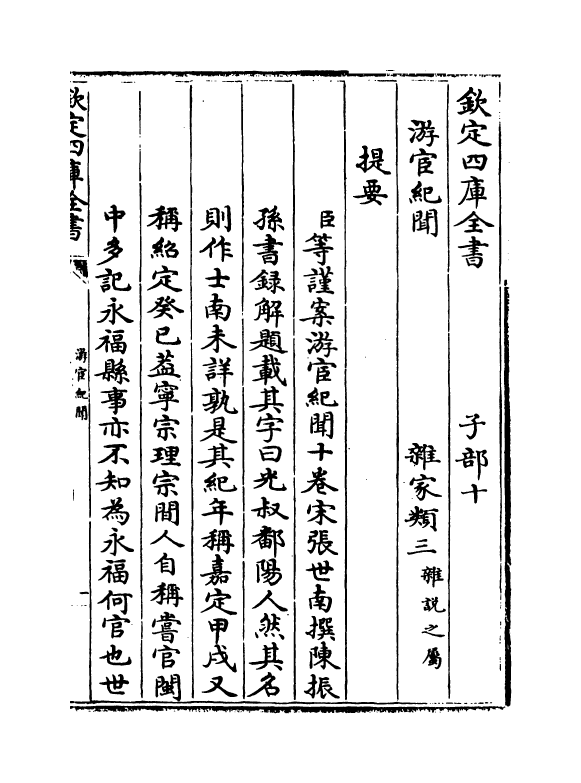 欽定四庫全書　子部十
游宦紀聞　雜家類三雜説之屬
提要
臣等謹案游宦紀聞十卷宋張世南撰陳振
孫書録解題載其字曰光叔鄱陽人然其名
則作士南未詳孰是其紀年稱嘉定甲戌又
稱紹定癸巳葢寧宗理宗間人自稱嘗官閩
中多記永福縣事亦不知為永福何官也世
欽定四庫全書
游宦紀聞
一